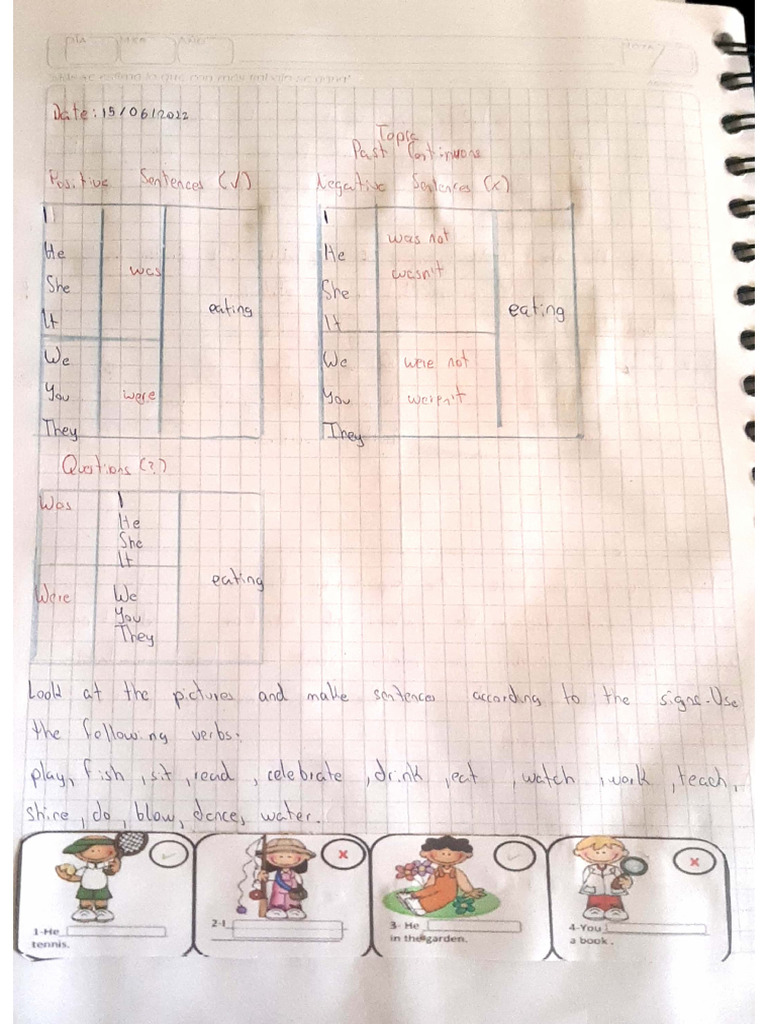 Date: 15/06/2022
Topic
Past Continuous
Positive Sentences (√)
Negative Sentences (x)
I
He
She
It
was
We
You
They
were
eating
I
He
She
It
was not
wasn't
We
You
They
were not
weren't
eating
Questions (?)
Was
I
He
She
It
Were
We
You
They
eating
Look at the pictures and make sentences according to the signs. Use
the following verbs:
play, fish, sit, read, celebrate, drink, eat, watch, work, teach,
shine, do, blow, dance, water.
1-He
tennis.
2-I
3- He
in the garden.
4-You
a book.